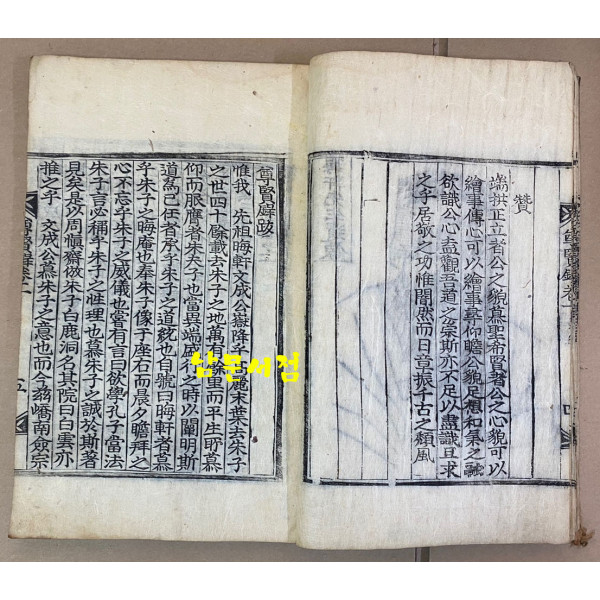 贊
端拱正立者公之貌慕聖希賢者公之心貌可以
繪事傳心可以繪事摹仰瞻公貌足想和氣之融
欲識公心盍觀吾道之宗斯亦不足以盡識且求
之乎居敬之功惟闇然而日章振千古之頹風
尊賢錄卷
四
尊賢錄跋
惟我 先祖晦軒文成公嶽降于 麗末葉去朱子
之世四十餘載去朱子之地萬有餘里而平生所慕
仰而服膺者朱夫子也當異端盛行之時以闢明斯
道爲己任者承乎朱子之道統也自號曰晦軒者慕
乎朱子之晦庵也奉朱子像于座右而晨夕瞻拜之
心不忘乎朱子之威儀也嘗有言曰欲學孔子當法
朱子言必稱乎朱子之性理也慕朱子之誠於斯著
見矣是以周愼齋倣朱子白鹿洞名其院曰白雲亦
推之乎 文成公慕朱子之意也而今 嶠南僉宗
五
남문서점